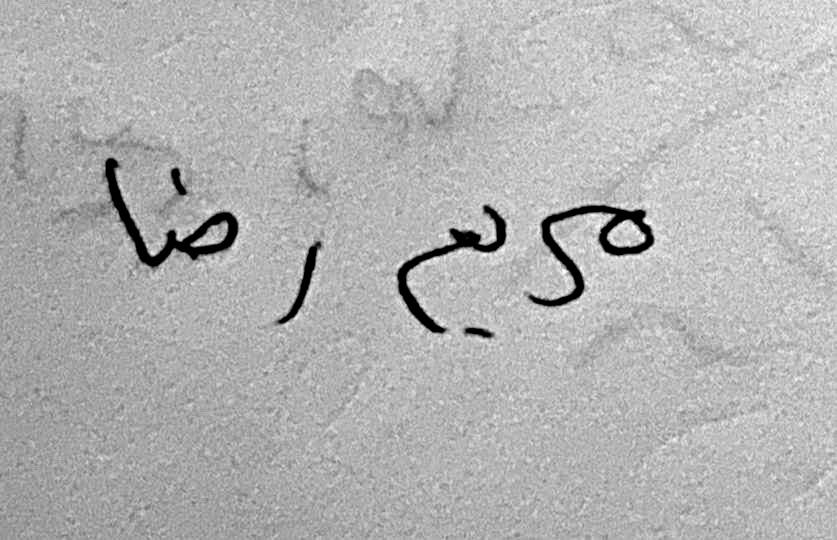 مریم رضا